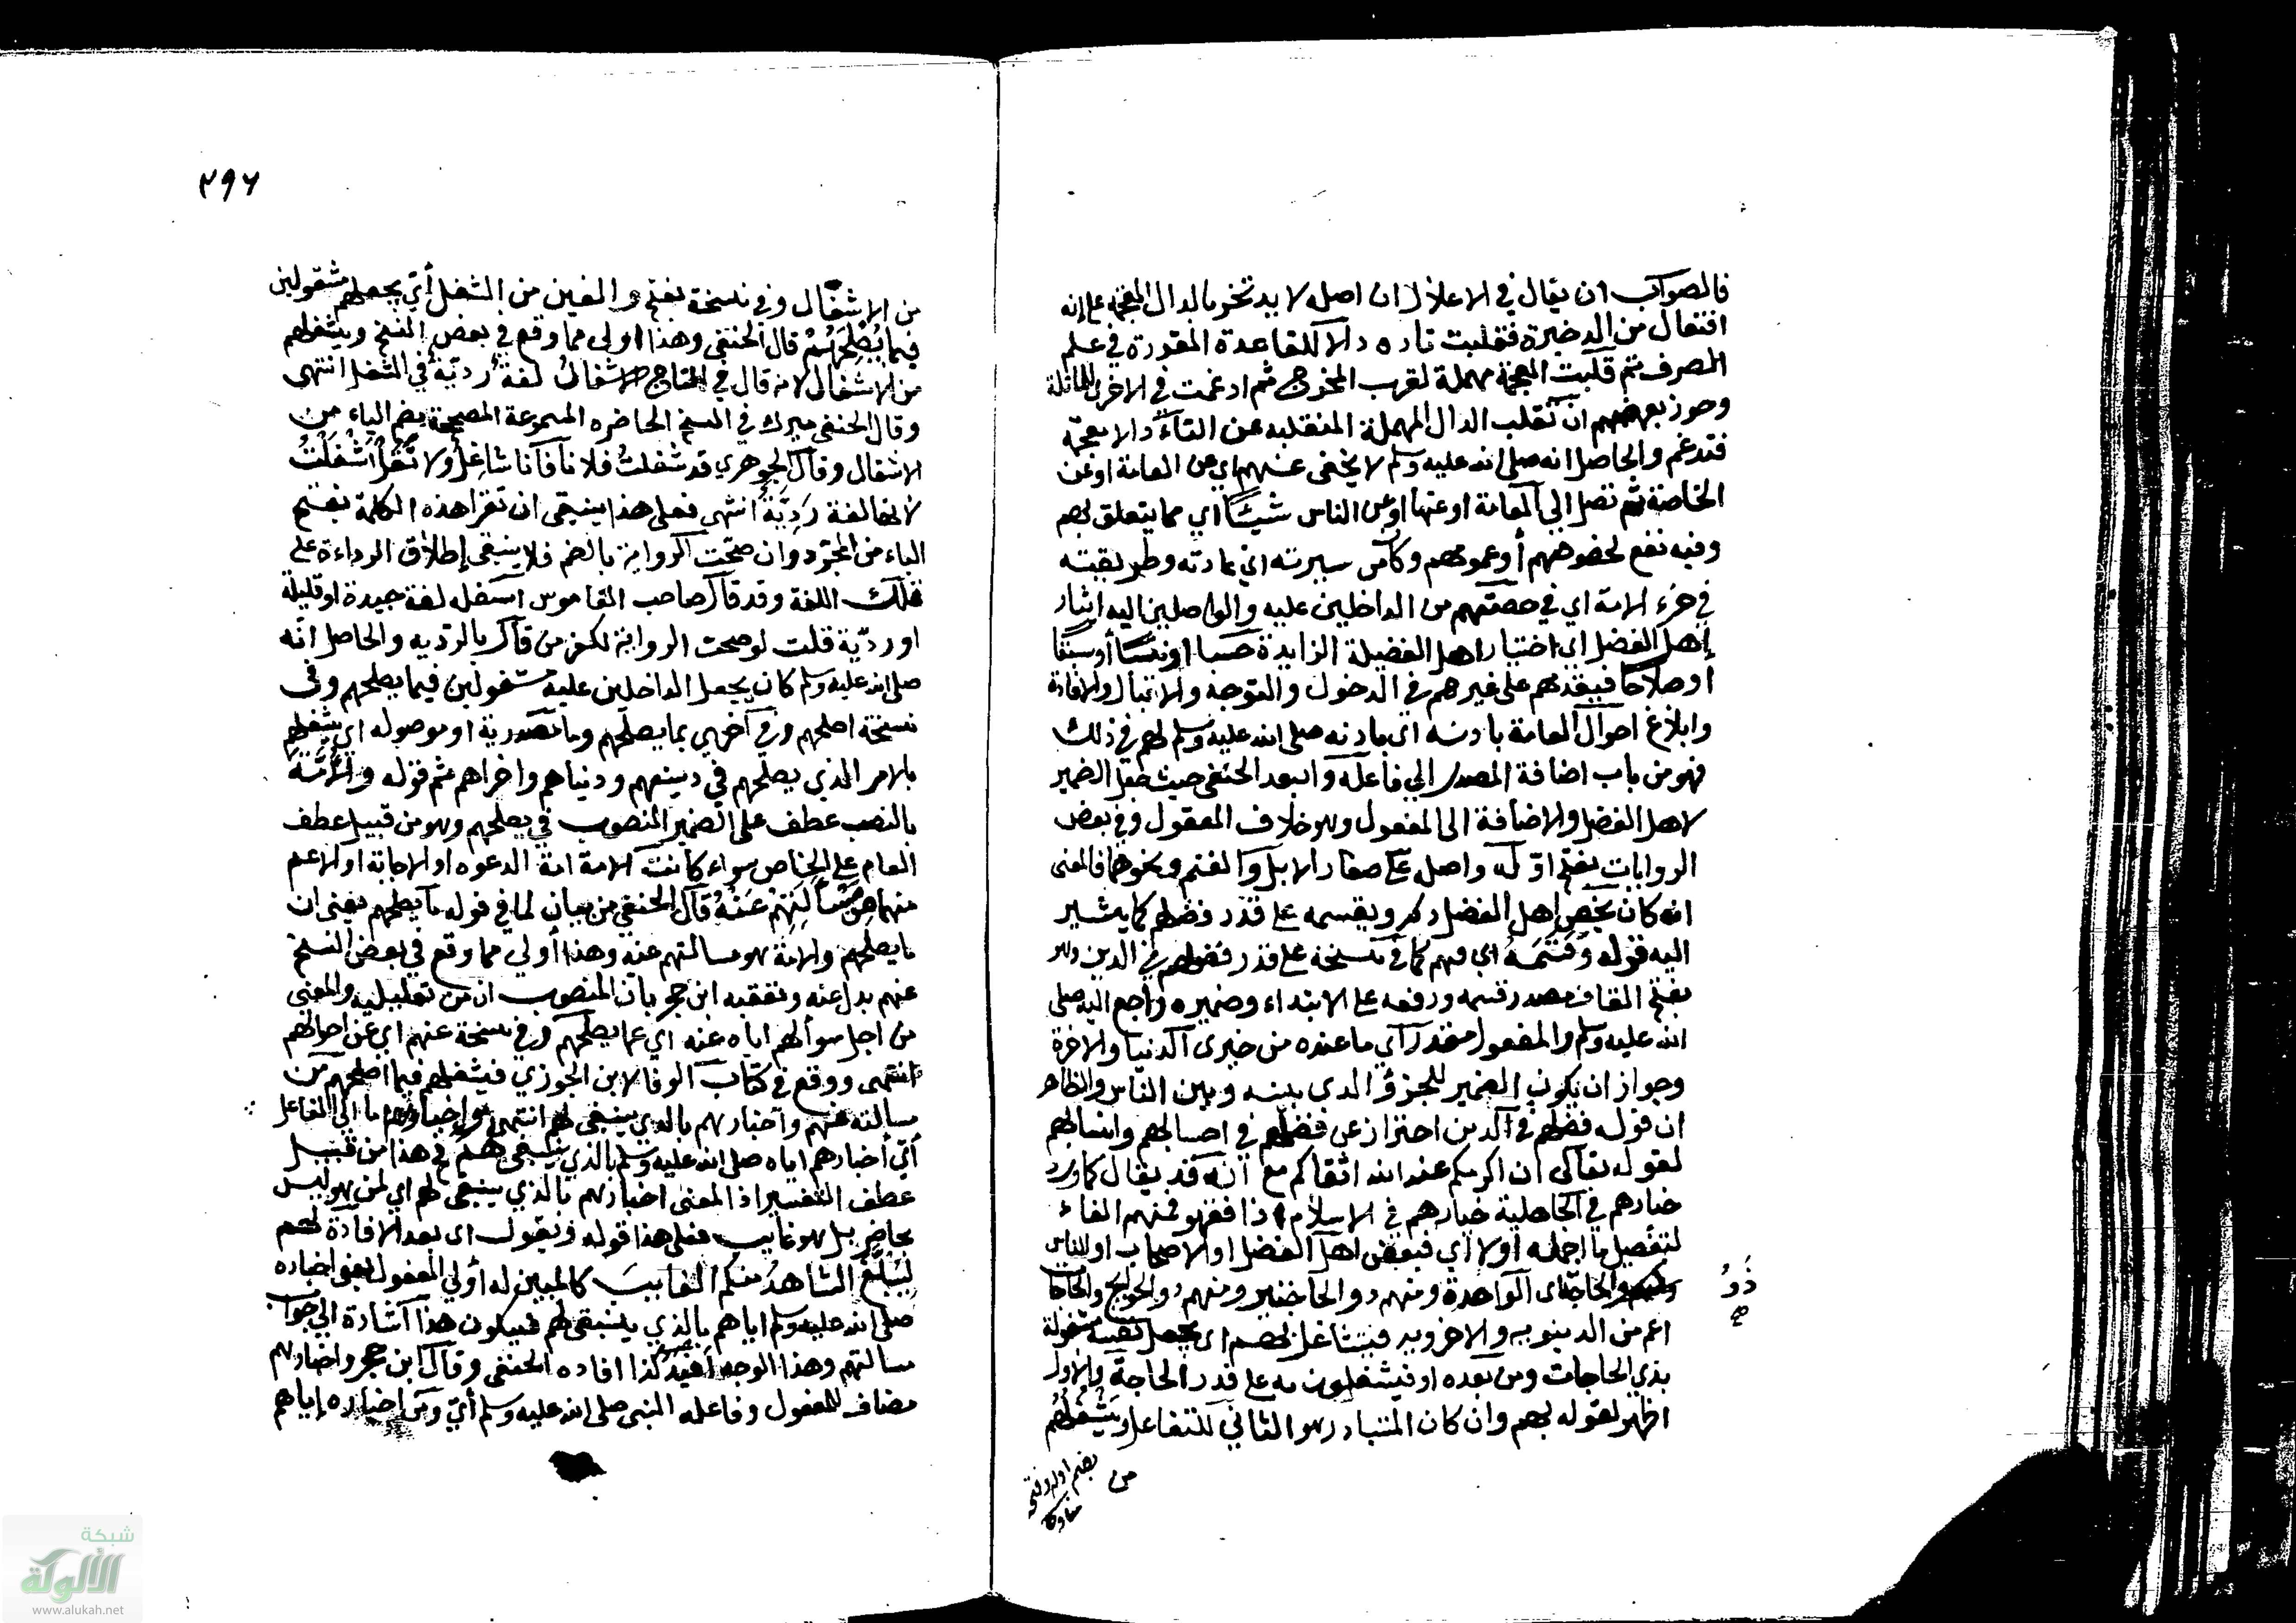 فالصواب ان يقال في الاعلال ان اصله لا يدتخر بالدال المعجمة على انه
افتعال من الدخيرة فقلبت تاره دالا للقاعدة المقررة في علم
الصرف ثم قلبت المعجمة مهملة لقرب المخرج ثم ادغمت في الاخرى للماثلة
وجوز بعضهم ان تقلب الدال المهملة المنقلبه عن التاء دالا معجمة
فتدغم والحاصل انه صلى الله عليه وسلم لا يخفى عنهم اي عن العامة او عن
الخاصة ثم تصل الى العامة او عنها او عن الناس شيئا اي مما يتعلق بهم
وفيه نفع لخصوصهم أو عمومهم وكان من سيرته اي عادته وطريقته
في جزء الامة اي في حصتهم من الداخلين عليه والواصلين اليه ايثار
اهل الفضل اى اختيار اهل الفضيلة الزايدة حسبا او نسبا أو سبقا
أو صلاحا فيقدمهم على غيرهم في الدخول والتوجه والاقبال والافادة
وابلاغ احوال العامة بادنه اى بادنه صلى الله عليه وسلم لهم في ذلك
فهو من باب اضافة المصدر الى فاعله وابعد الحنفى حيث جعل الضمير
لاهل الفضل والاضافة الى المفعول وهو خلاف المعقول وفي بعض
الروايات بفتح اوله واصله على صغار الابل والغنم ونحوهما فالمعنى
انه كان يخص اهل الفضل ويقسمه على قدر فضلهم كما يشير
اليه قوله وقسمه اي فيهم كما في نسخة على قدر فضلهم في الدين وهو
بفتح القاف مصدر قسمه ورفعه على الابتداء وضميره راجع اليه صلى
الله عليه وسلم والمفعول مقدر اي ما عنده من خيرى الدنيا والاخرة
وجواز ان يكون الضمير للجزؤ الدى بينه وبين الناس والظاهر
ان قوله فضلهم في الدين احتراز عن فضلهم في احسابهم وانسابهم
لقوله تعالى ان اكرمكم عند الله اتقاكم مع انه قد يقال كما ورد
خيارهم في الجاهلية خيارهم في الاسلام اذا فقهو فمنهم الفاء
لتفصيل ما اجمله أولا اي فبعض اهل الفضل او الاصحاب او الناس
والحاجة اى الواحدة ومنهم دو الحاجتين ومنهم دو الحوايج والحاجات
ذو
صح
اعم من الدينويه والاخرويه فيتشاغل بهم اى يجعل نفسه مشغولة
بذي الحاجات ومن بعده او فيشغلون به على قدر الحاجة والاول
اظهر لقوله بهم وان كان المتبادر هو الثاني للتفاعل ويشغلهم
من
بضم اوله وفتحه
مناوى
٢٩٦
من الاشغال وفي نسخة بفتح و الغين من الشغل أي يجعلهم مشغولين
فيما يصلحهم قال الحنفى وهذا اولى مما وقع في بعض النسخ ويشغلهم
من الاشغال لانه قال في التاج الاشغال لغة رديّة في الشغل انتهى
وقال الحنفى ميرك في النسخ الحاضره المسموعة المصححة بضم الياء من
الاشغال وقال الجوهري قد شغلت فلانا فأنا شاغل ولا تقل اشغلت
لانها لغة رديّة انتهى فعلى هذا ينبغى ان تقرا هذه الكلمة بفتح
الياء من المجرد وان صحت الرواية بالضم فلا ينبغى إطلاق الرداءة على
تلك اللغة وقد قال صاحب القاموس اشغله لغة جيدة او قليلة
او رديّة قلت لو صحت الرواية لكفر من قال بالرديه والحاصل انّه
صلى الله عليه وسلم كان يجعل الداخلين عليه مشغولين فيما يصلحهم وفى
نسخة اصلحهم وفي اخرى بما يصلحهم وما مصدرية او موصوله اي يشغلهم
بالامر الذي يصلحهم في دينهم ودنياهم واخراهم ثم قوله والأمّة
بالنصب عطف على الضمير المنصوب في يصلحهم وهو من قبيل عطف
العام على الخاص سواء كانت الامة امة الدعوه او الاجابة او الاعم
منهما من مسألتهم عنه قال الحنفي من بيان لما في قوله ما يصلحهم يعنى ان
ما يصلحهم والامة هو مسالتهم عنه وهذا أولى مما وقع في بعض النسخ
عنهم بدل عنه وتعقبه ابن حجر بان المنصوب ان من تعليلية والمعنى
من اجل سوالهم اياه عنه اي عما يصلحهم وفي نسخة عنهم اى عن احوالهم
انتهى ووقع في كتاب الوفا لابن الجوزي فيشغلهم فيما اصلحهم من
مسالته عنهم واخبارهم بالدي ينبغى لهم انتهى واخبارهم اما الى الفاعل
أي أخبارهم اياه صلى الله عليه وسلم بالذي ينبغى لهم في هذا من قبيل
عطف التفسير اذ المعنى اخبارهم بالذي ينبغى لهم اي لمن هو ليس
بحاضر بل هو غايب فعلى هذا قوله ويقول اى بعد الافادة لهم
ليبلغ الشاهد منكم الغايب كالمبين له أو الى المفعول يعنى اخباره
صلى الله عليه وسلم اياهم بالذي ينبغى لهم فيكون هذا اشارة الى جواب
مسالتهم وهذا الوجه أفيد كذا افاده الحنفى وقال ابن حجر واخبارهم
مضاف للمفعول وفاعله النبى صلى الله عليه وسلم أي ومن اخباره إياهم
شبكة
الألوكة
www.alukah.net